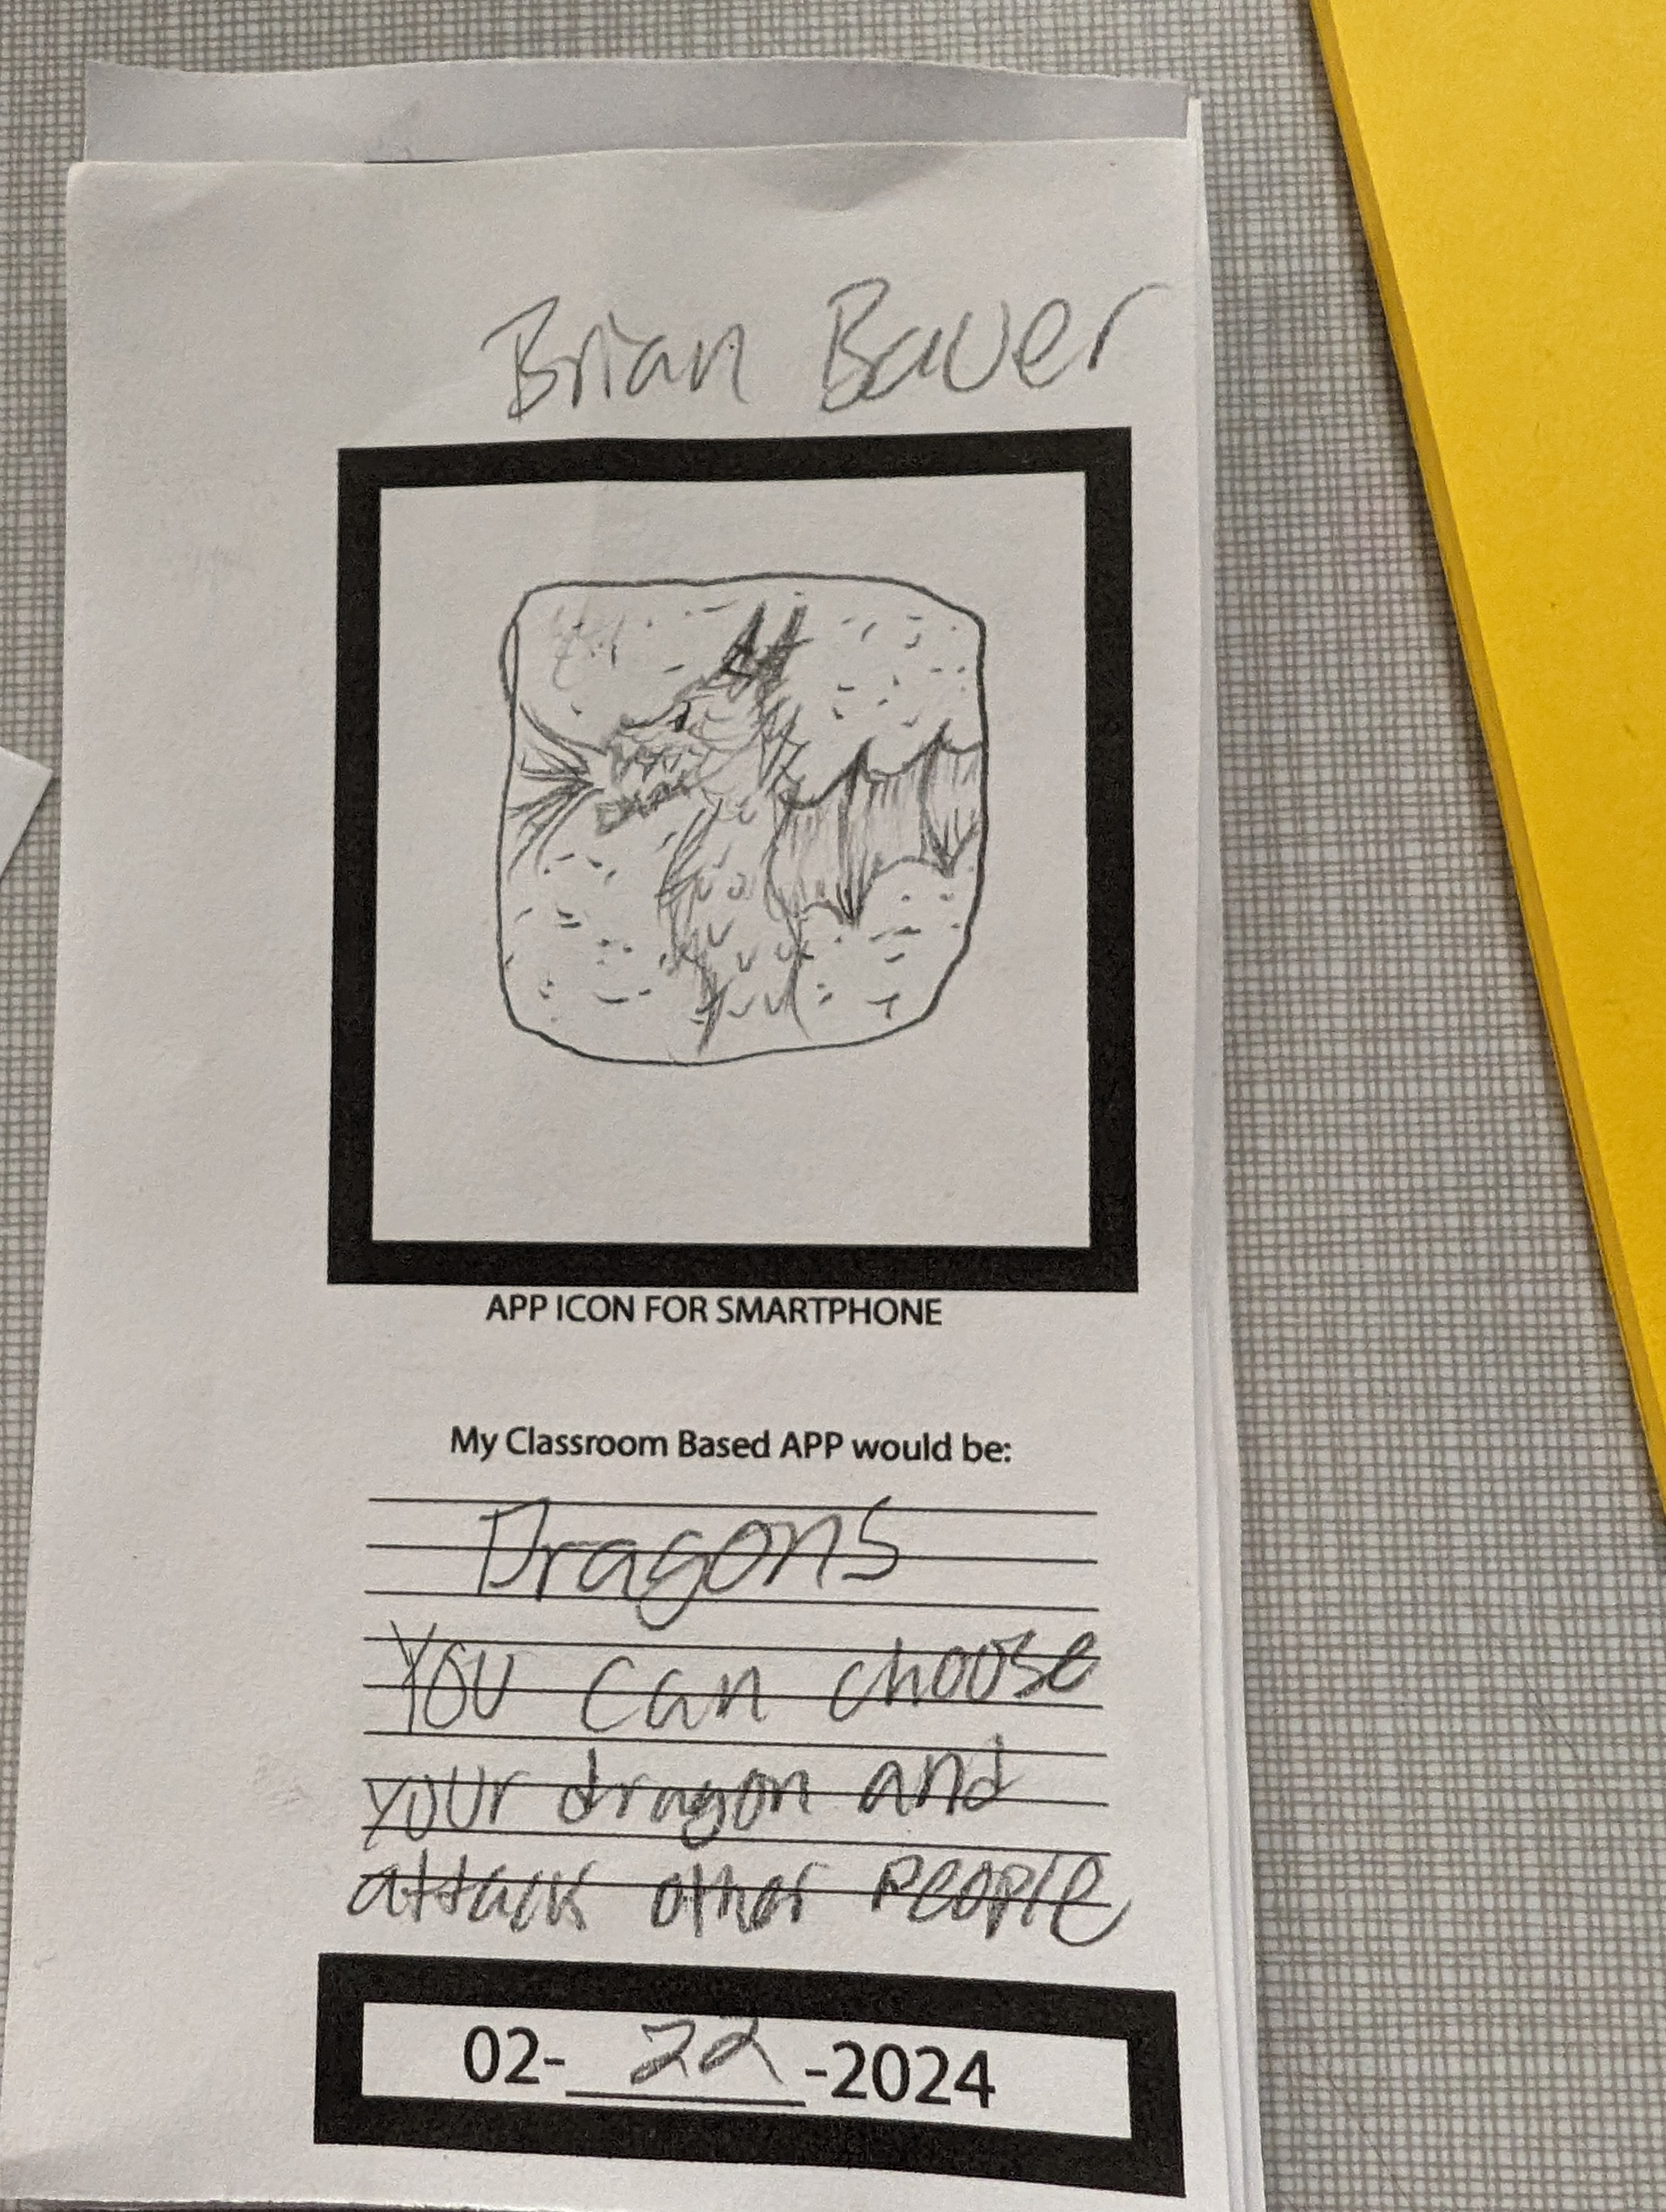 Brian Bauer
APP ICON FOR SMARTPHONE
My Classroom Based APP would be:
Dragons
You can choose
your dragon and
attack other people
02-22-2024